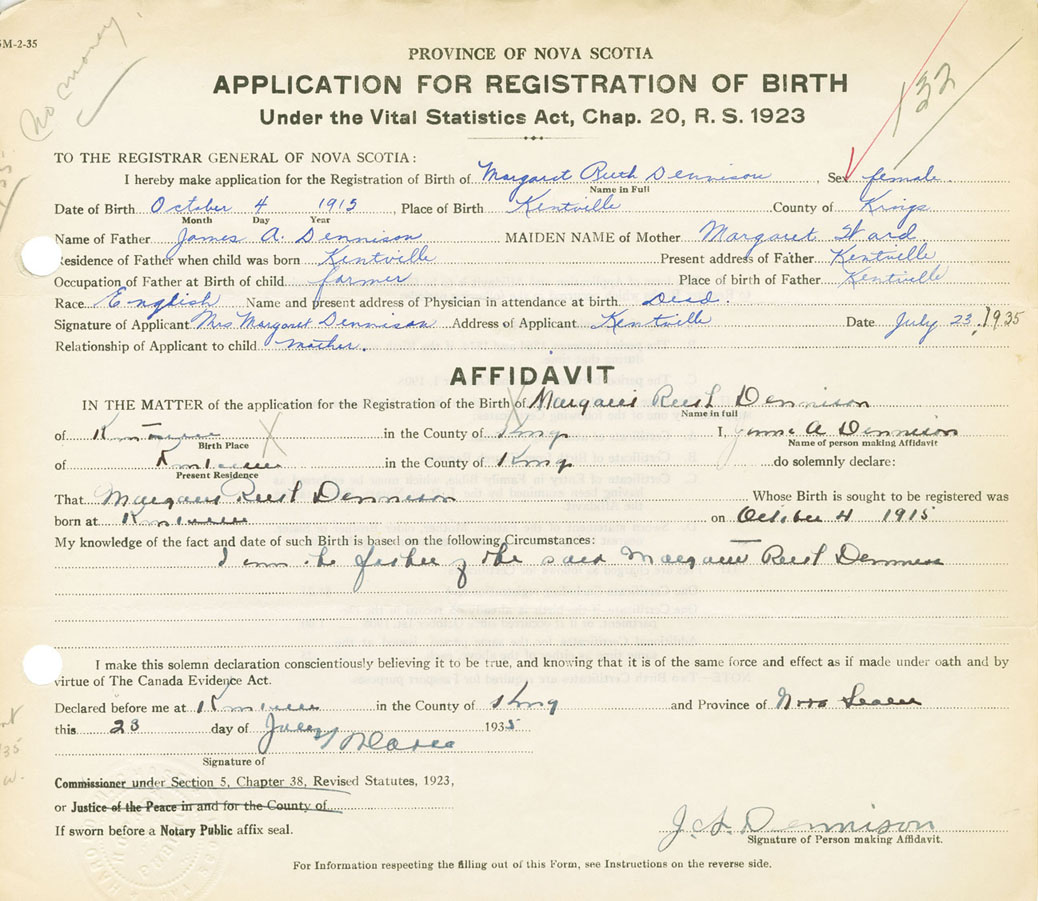 5M-2-35
No money.
132
PROVINCE OF NOVA SCOTIA
APPLICATION FOR REGISTRATION OF BIRTH
Under the Vital Statistics Act, Chap. 20, R. S. 1923
TO THE REGISTRAR GENERAL OF NOVA SCOTIA:
I hereby make application for the Registration of Birth of Margaret Ruth Dennison, Sex female
Name in Full
Date of Birth October 4 1915, Place of Birth Kentville County of Kings
Month Day Year
Name of Father James A. Dennison MAIDEN NAME of Mother Margaret Ward
Residence of Father when child was born Kentville Present address of Father Kentville
Occupation of Father at Birth of child farmer Place of birth of Father Kentville
Race English Name and present address of Physician in attendance at birth Dead.
Signature of Applicant Mrs Margaret Dennison Address of Applicant Kentville Date July 23, 1935
Relationship of Applicant to child mother.
AFFIDAVIT
IN THE MATTER of the application for the Registration of the Birth of Margaret Ruth Dennison
Name in full
of Kentville in the County of Kings I, James A Dennison
Birth Place Name of person making Affidavit
of Kentville in the County of Kings do solemnly declare:
Present Residence
That Margaret Ruth Dennison Whose Birth is sought to be registered was
born at Kentville on October 4 1915
My knowledge of the fact and date of such Birth is based on the following Circumstances:
I am the father of the said Margaret Ruth Dennison
I make this solemn declaration conscientiously believing it to be true, and knowing that it is of the same force and effect as if made under oath and by
virtue of The Canada Evidence Act.
Declared before me at Kentville in the County of Kings and Province of Nova Scotia
this 23 day of July 1935
Signature of
Commissioner under Section 5, Chapter 38, Revised Statutes, 1923,
or Justice of the Peace in and for the County of
If sworn before a Notary Public affix seal.
J. A. Dennison
Signature of Person making Affidavit.
For Information respecting the filling out of this Form, see Instructions on the reverse side.